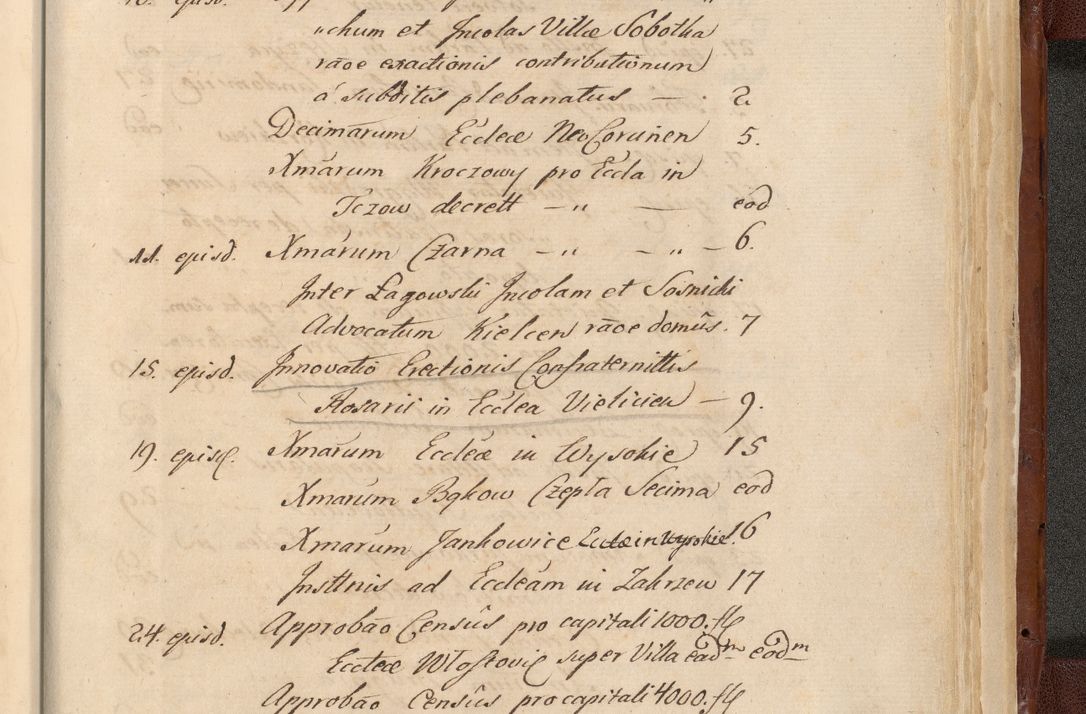 „chum et Incolas Villæ Sobotka
rãoe exactionis contributionum
á subditis plebanatus — . 2.
Decimarum Eccleæ NeoCorcinen 5.
Xmárum Kroczowy pro Eccla in
Tczow decrett — „ — eod
11. episd. Xmárum Czarna — „ — „ — 6.
Inter Łagowski Incolam et Sosnicki
Advocatum Kielcen rãoe domûs. 7
15. episd. Innovatio Erectionis Confraternittis
Rosarii in Ecclea Vielicien — 9.
19. episd. Xmárum Eccleæ in Wysokie 15
Xmárum Bąkow Czepła Secima eod
Xmarum Jankowice Eccleæ in Wysokie. 16
Insttnis ad Eccleám in Zakrzew 17
24. episd. Approbão Censûs pro capitali 1000. fl
Eccleæ Włostovie super Villa eâdm eodm
Approbão Censûs pro capitali 4000. fl